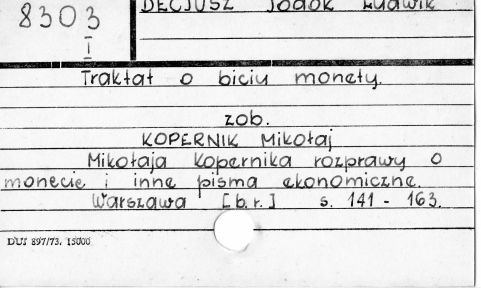 8303
I
DECJUSZ Jodok Ludwik
Traktat o biciu monety.
zob.
KOPERNIK Mikołaj
Mikołaja Kopernika rozprawy o
monecie i inne pisma ekonomiczne.
Warszawa [b.r.] s. 141 - 163.
DUS 897/73. 15000